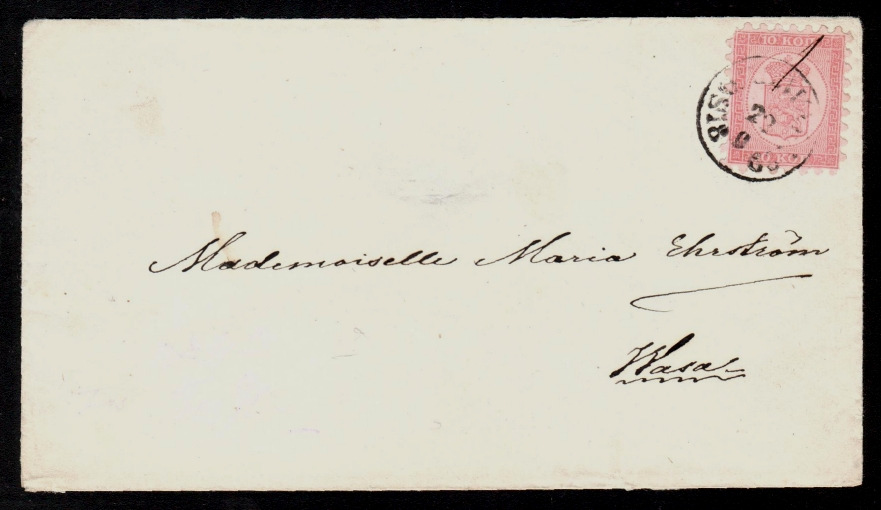 10 KOP
20
10 KOP
Mademoiselle Maria Ehrström
Wasa